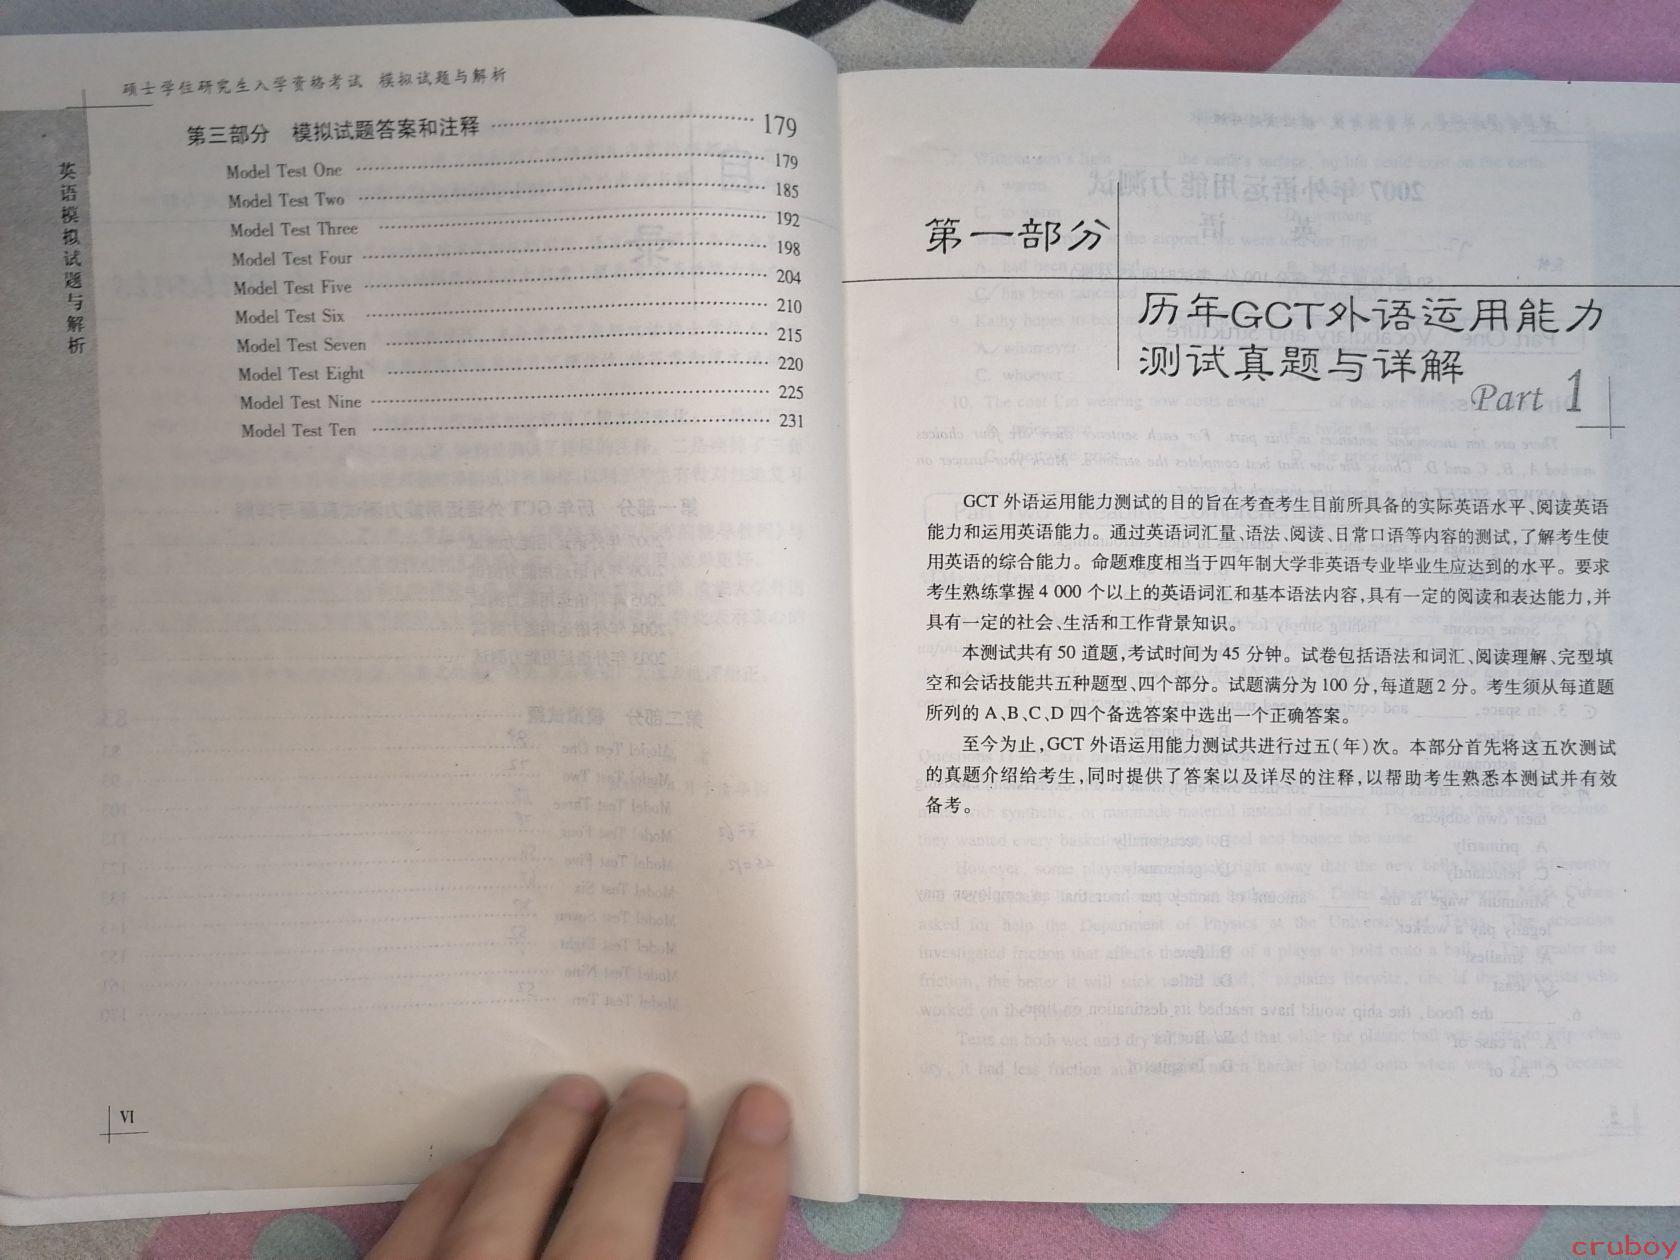 硕士学位研究生入学资格考试 模拟试题与解析
英语模拟试题与解析
第三部分 模拟试题答案和注释 ………… 179
Model Test One ………… 179
Model Test Two ………… 185
Model Test Three ………… 192
Model Test Four ………… 198
Model Test Five ………… 204
Model Test Six ………… 210
Model Test Seven ………… 215
Model Test Eight ………… 220
Model Test Nine ………… 225
Model Test Ten ………… 231
VI
第一部分
历年GCT外语运用能力
测试真题与详解
Part 1
GCT 外语运用能力测试的目的旨在考查考生目前所具备的实际英语水平、阅读英语
能力和运用英语能力。通过英语词汇量、语法、阅读、日常口语等内容的测试,了解考生使
用英语的综合能力。命题难度相当于四年制大学非英语专业毕业生应达到的水平。要求
考生熟练掌握 4 000 个以上的英语词汇和基本语法内容,具有一定的阅读和表达能力,并
具有一定的社会、生活和工作背景知识。
本测试共有 50 道题,考试时间为 45 分钟。试卷包括语法和词汇、阅读理解、完型填
空和会话技能共五种题型、四个部分。试题满分为 100 分,每道题 2 分。考生须从每道题
所列的 A、B、C、D 四个备选答案中选出一个正确答案。
至今为止,GCT 外语运用能力测试共进行过五(年)次。本部分首先将这五次测试
的真题介绍给考生,同时提供了答案以及详尽的注释,以帮助考生熟悉本测试并有效
备考。
cruboy